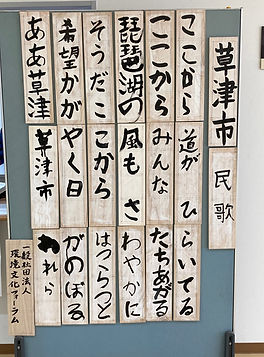 草津市 民歌
ここから 道が ひらいてる
ここから みんな たちあがる
琵琶湖の 風も さわやかに
そうだここから はつらつと
希望かがやく日 がのぼる
ああ草津 草津市 われら
一般社団法人
環境文化フォーラム